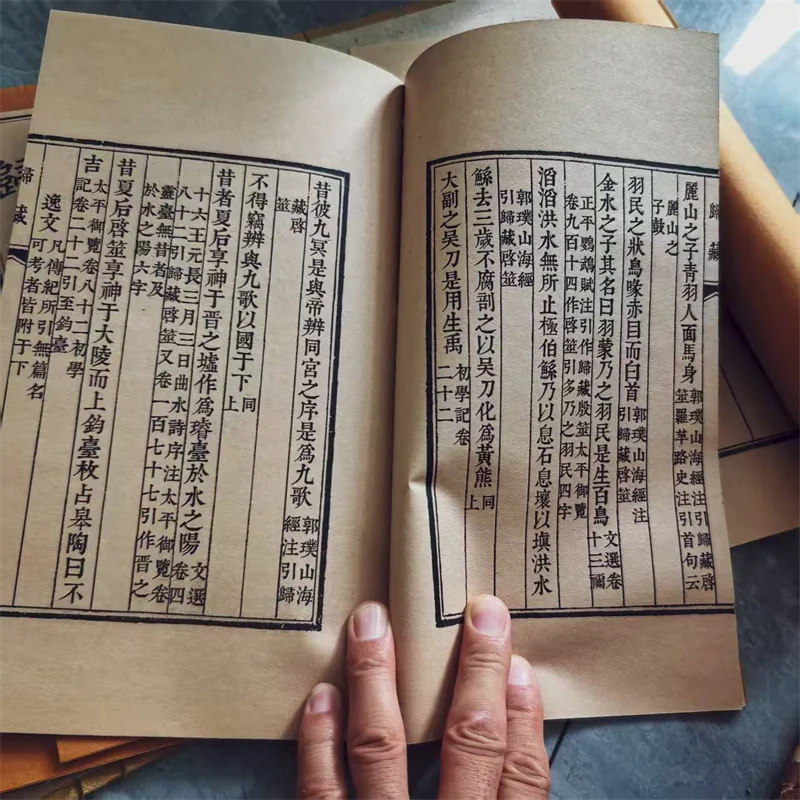 歸藏
麗山之子青羽人面馬身 郭璞山海經注引歸藏啓筮羅苹路史注引首句云
麗山之子鼓
羽民之狀鳥喙赤目而白首 郭璞山海經注引歸藏啓筮
金水之子其名曰羽蒙乃之羽民是生百鳥 文選卷十三禰
正平鸚鵡賦注引作歸藏殷筮太平御覽卷九百十四作啓筮引多乃之羽民四字
滔滔洪水無所止極伯鯀乃以息石息壤以填洪水
郭璞山海經注引歸藏啓筮
鯀去三歲不腐剖之以吳刀化爲黃熊 同上
大副之吳刀是用生禹 初學記卷二十二
昔彼九冥是與帝辨同宮之序是爲九歌 郭璞山海經注引歸
藏啓筮
不得竊辨與九歌以國于下 同上
昔者夏后享神于晉之墟作爲璿臺於水之陽 文選卷四
十六王元長三月三日曲水詩序注太平御覽卷八十二引歸藏啓筮又卷一百七十七引作晉之
靈臺無昔者及於水之陽六字
昔夏后啓筮享神于大陵而上鈞臺枚占皋陶曰不
吉 太平御覽卷八十二初學記卷二十二引至鈞臺
逸文 凡傳紀所引無篇名可考者皆附于下
歸藏